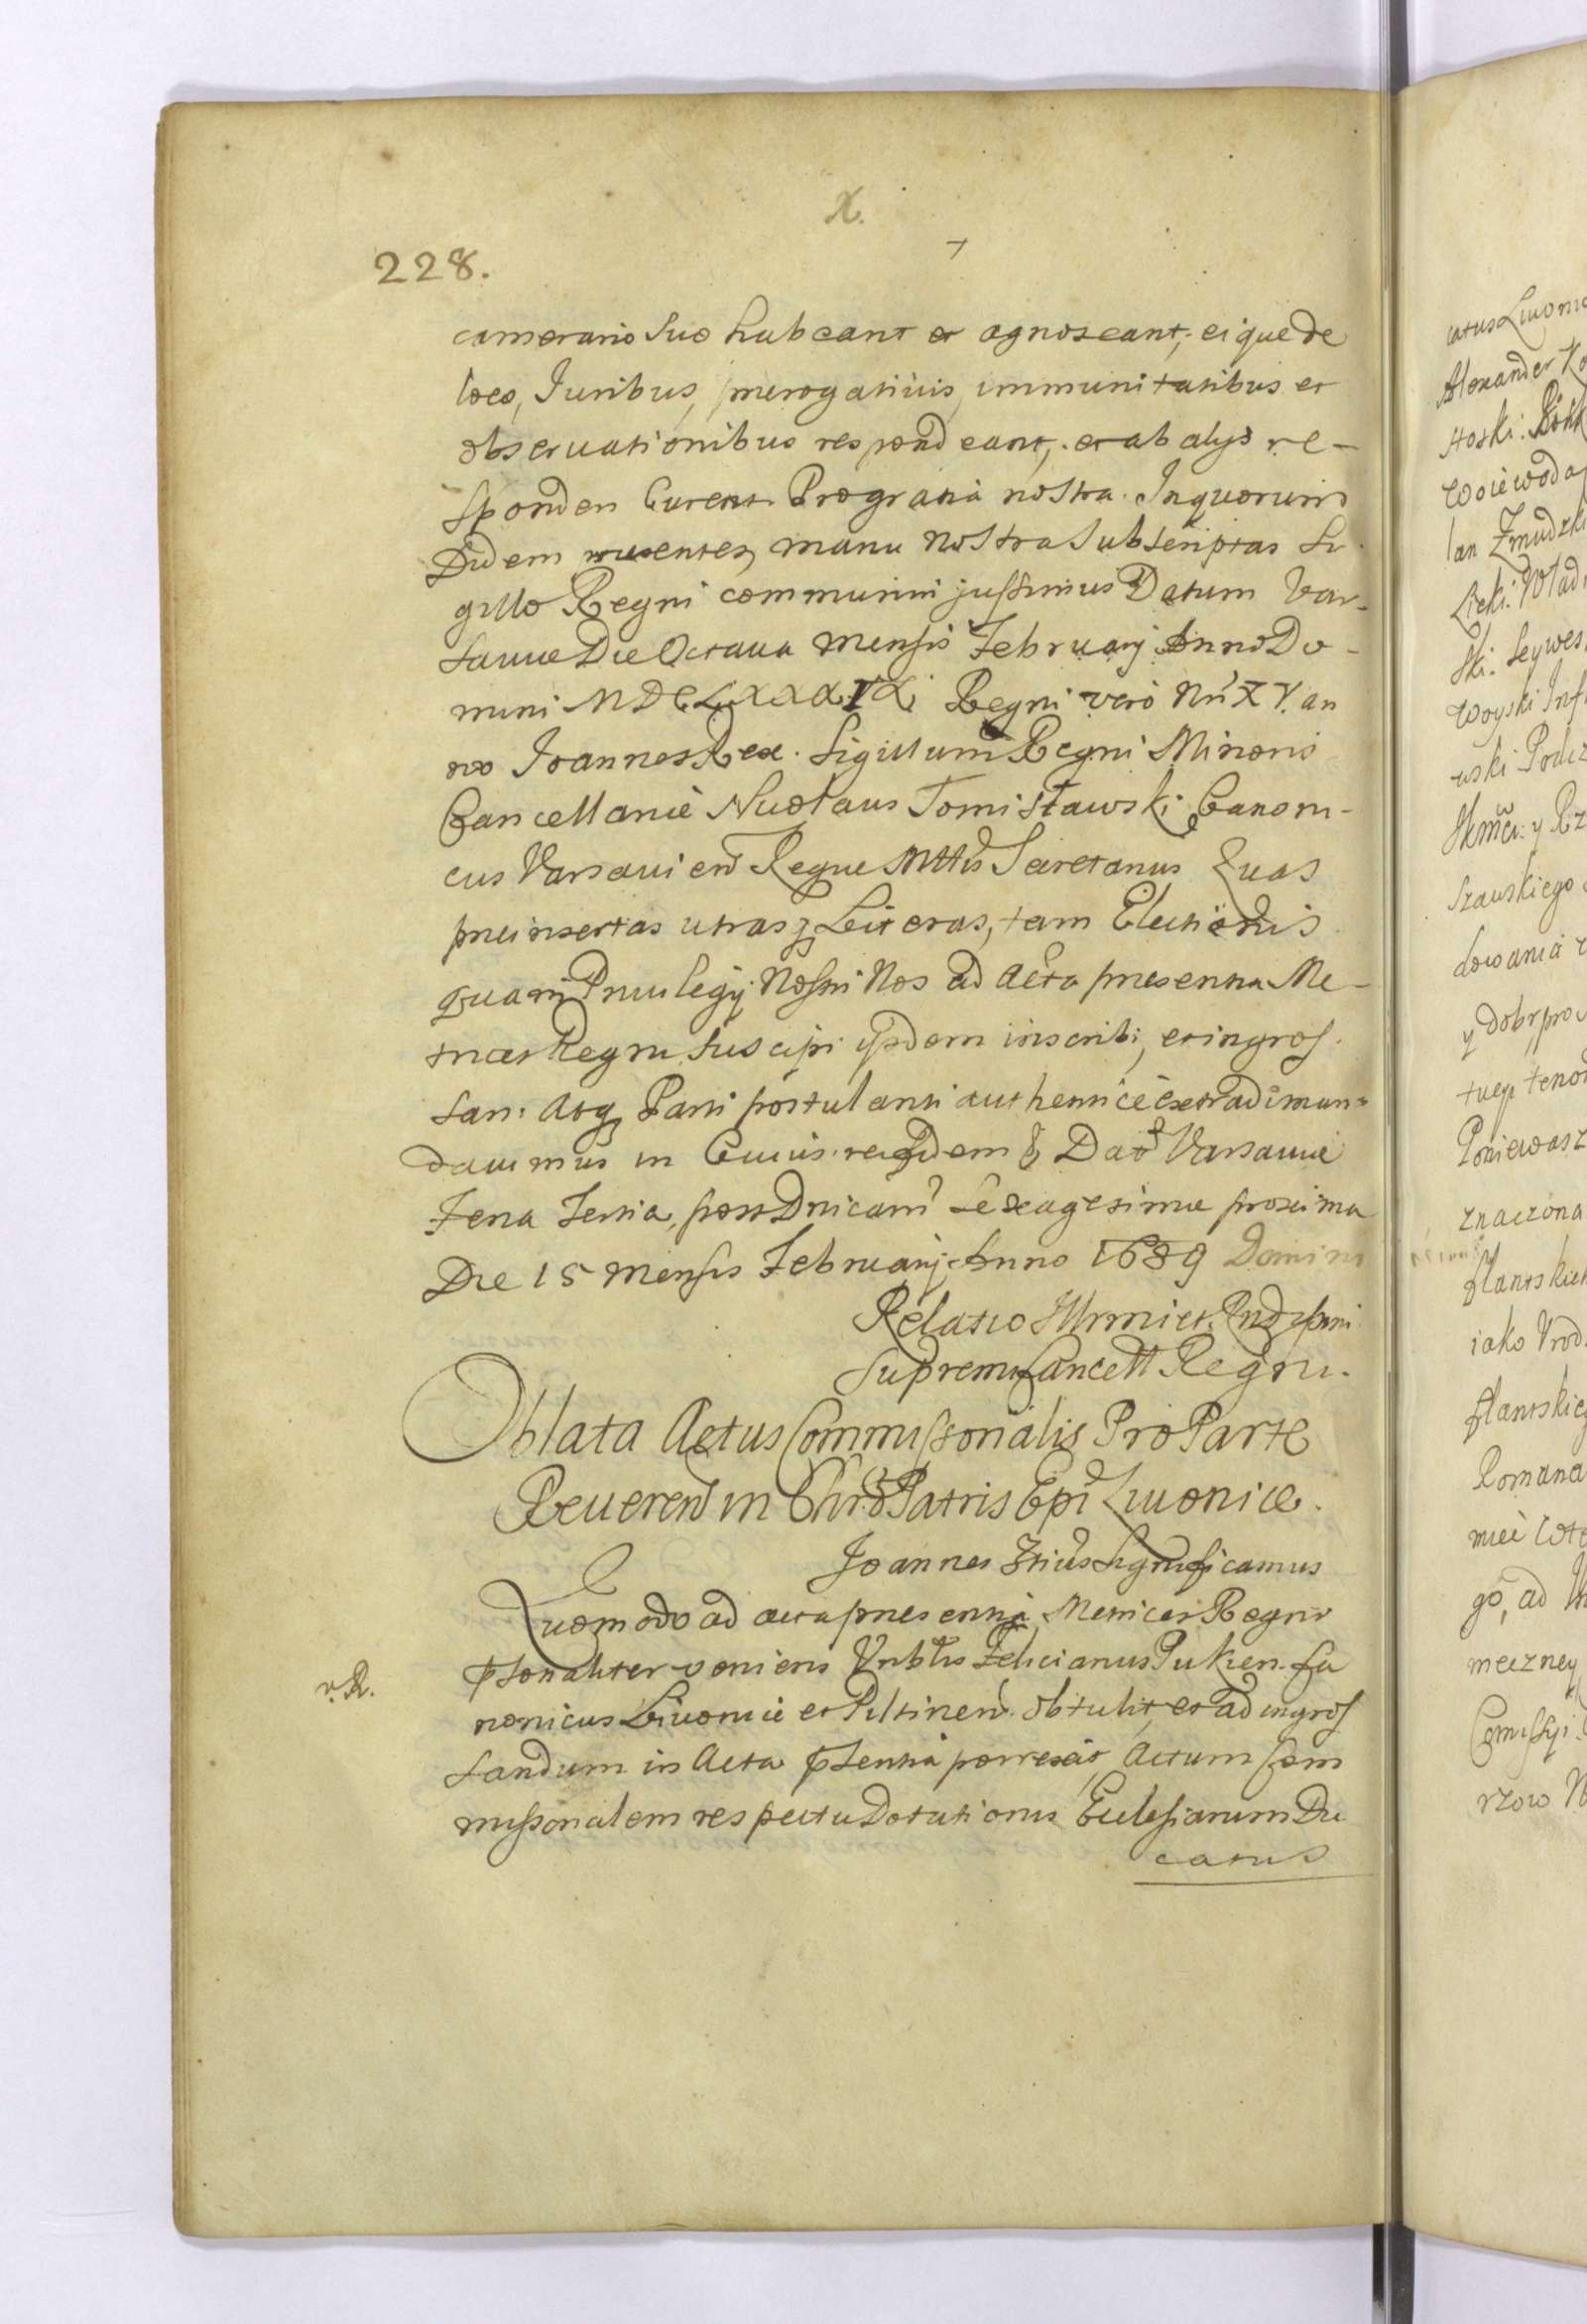 X.
228.
camerario suo habeant et agnoscant, eique de
loco, Juribus, prerogatiuis, immunitatibus et
obseruationibus respondeant, et ab alijs re-
sponderi curent Pro gratia nostra. In quorum
Fidem presentes manu nostra subscriptas Si
gillo Regni communiri jussimus Datum Var-
sauiæ Die Octaua Mensis Februarij Anno Do-
mini MDCLXXXIX Regni vero Nri XV. an
no Joannes Rex. Sigillum Regni Minoris
Cancellariæ Nicolaus Tomisławski Canoni-
cus Varsauien Regiæ Mttis Secretarius Quas
preinsertas utrasq Literas, tam Electionis
quam Priuilegij Nostri Nos ad Acta presentia Me-
trices Regni suscipi ijsdem inscribi, et ingros-
sari Atq Parti postulanti authentice extradi man-
dauimus in Cuius rei fidem & Dat Varsauiæ
Feria Tertia, post Dnicam Sexagesimæ proxima
Die 15 Mensis Februarij Anno 1689 Domini
Relatio Illrmi et Rndssimi
Supremi Cancell Regni.
Oblata Actus Commissorialis Pro Parte
Reuerend in Chro Patris Epi Liuoniæ.
Joannes 3tius Significamus
Quomodo ad acta presentia Metrices Regni
psonaliter veniens Vnbls Felicianus Pukien Ca
nonicus Liuoniæ et Piltinen obtulit, et ad ingros
sandum in Acta psentia porrexit, Actum Com
missorialem respectu Dotationis Ecclesiarum Du
catus
v. R.
catus Liuonia
Alexander
Woiewoda
lan Zmudzki
Woyski Inf
uski Podcz
Szawskiego
dowania
y dobr pro
Poniewasz
znaczona
flantskich
iako Vrod.
flantskieg
Romana
go, ad
meczney
Comissyi
rzow